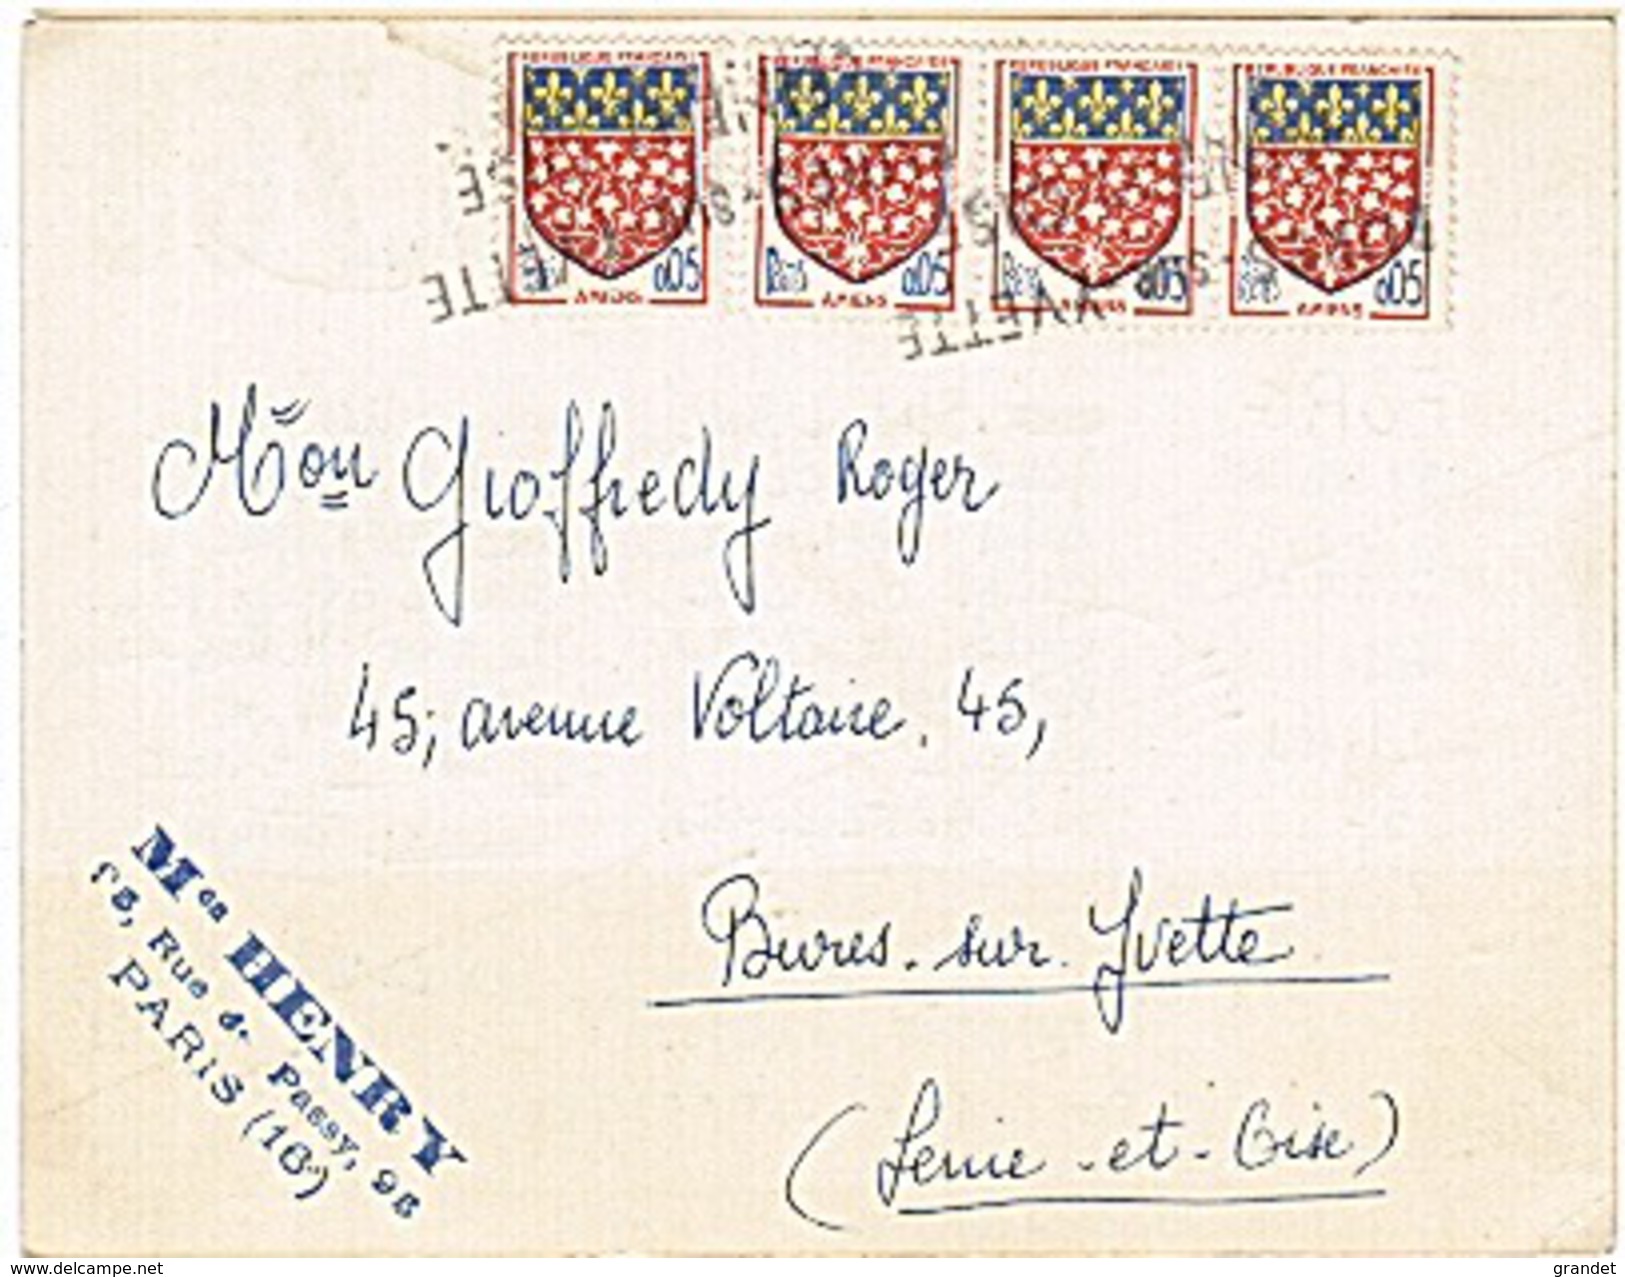 REPUBLIQUE FRANCAISE REPUBLIQUE FRANCAISE REPUBLIQUE FRANCAISE REPUBLIQUE FRANCAISE
Postes 0,05 Postes 0,05 Postes 0,05 Postes 0,05
AMIENS AMIENS AMIENS AMIENS
YVETTE
YVETTE
Mön Gioffredy Roger
45; avenue Voltaire. 45,
Bures-sur-Yvette
(Seine-et-Oise)
Mon HENRY
Rue de Passy, 98
PARIS (16e)
delcampe.net
grandet